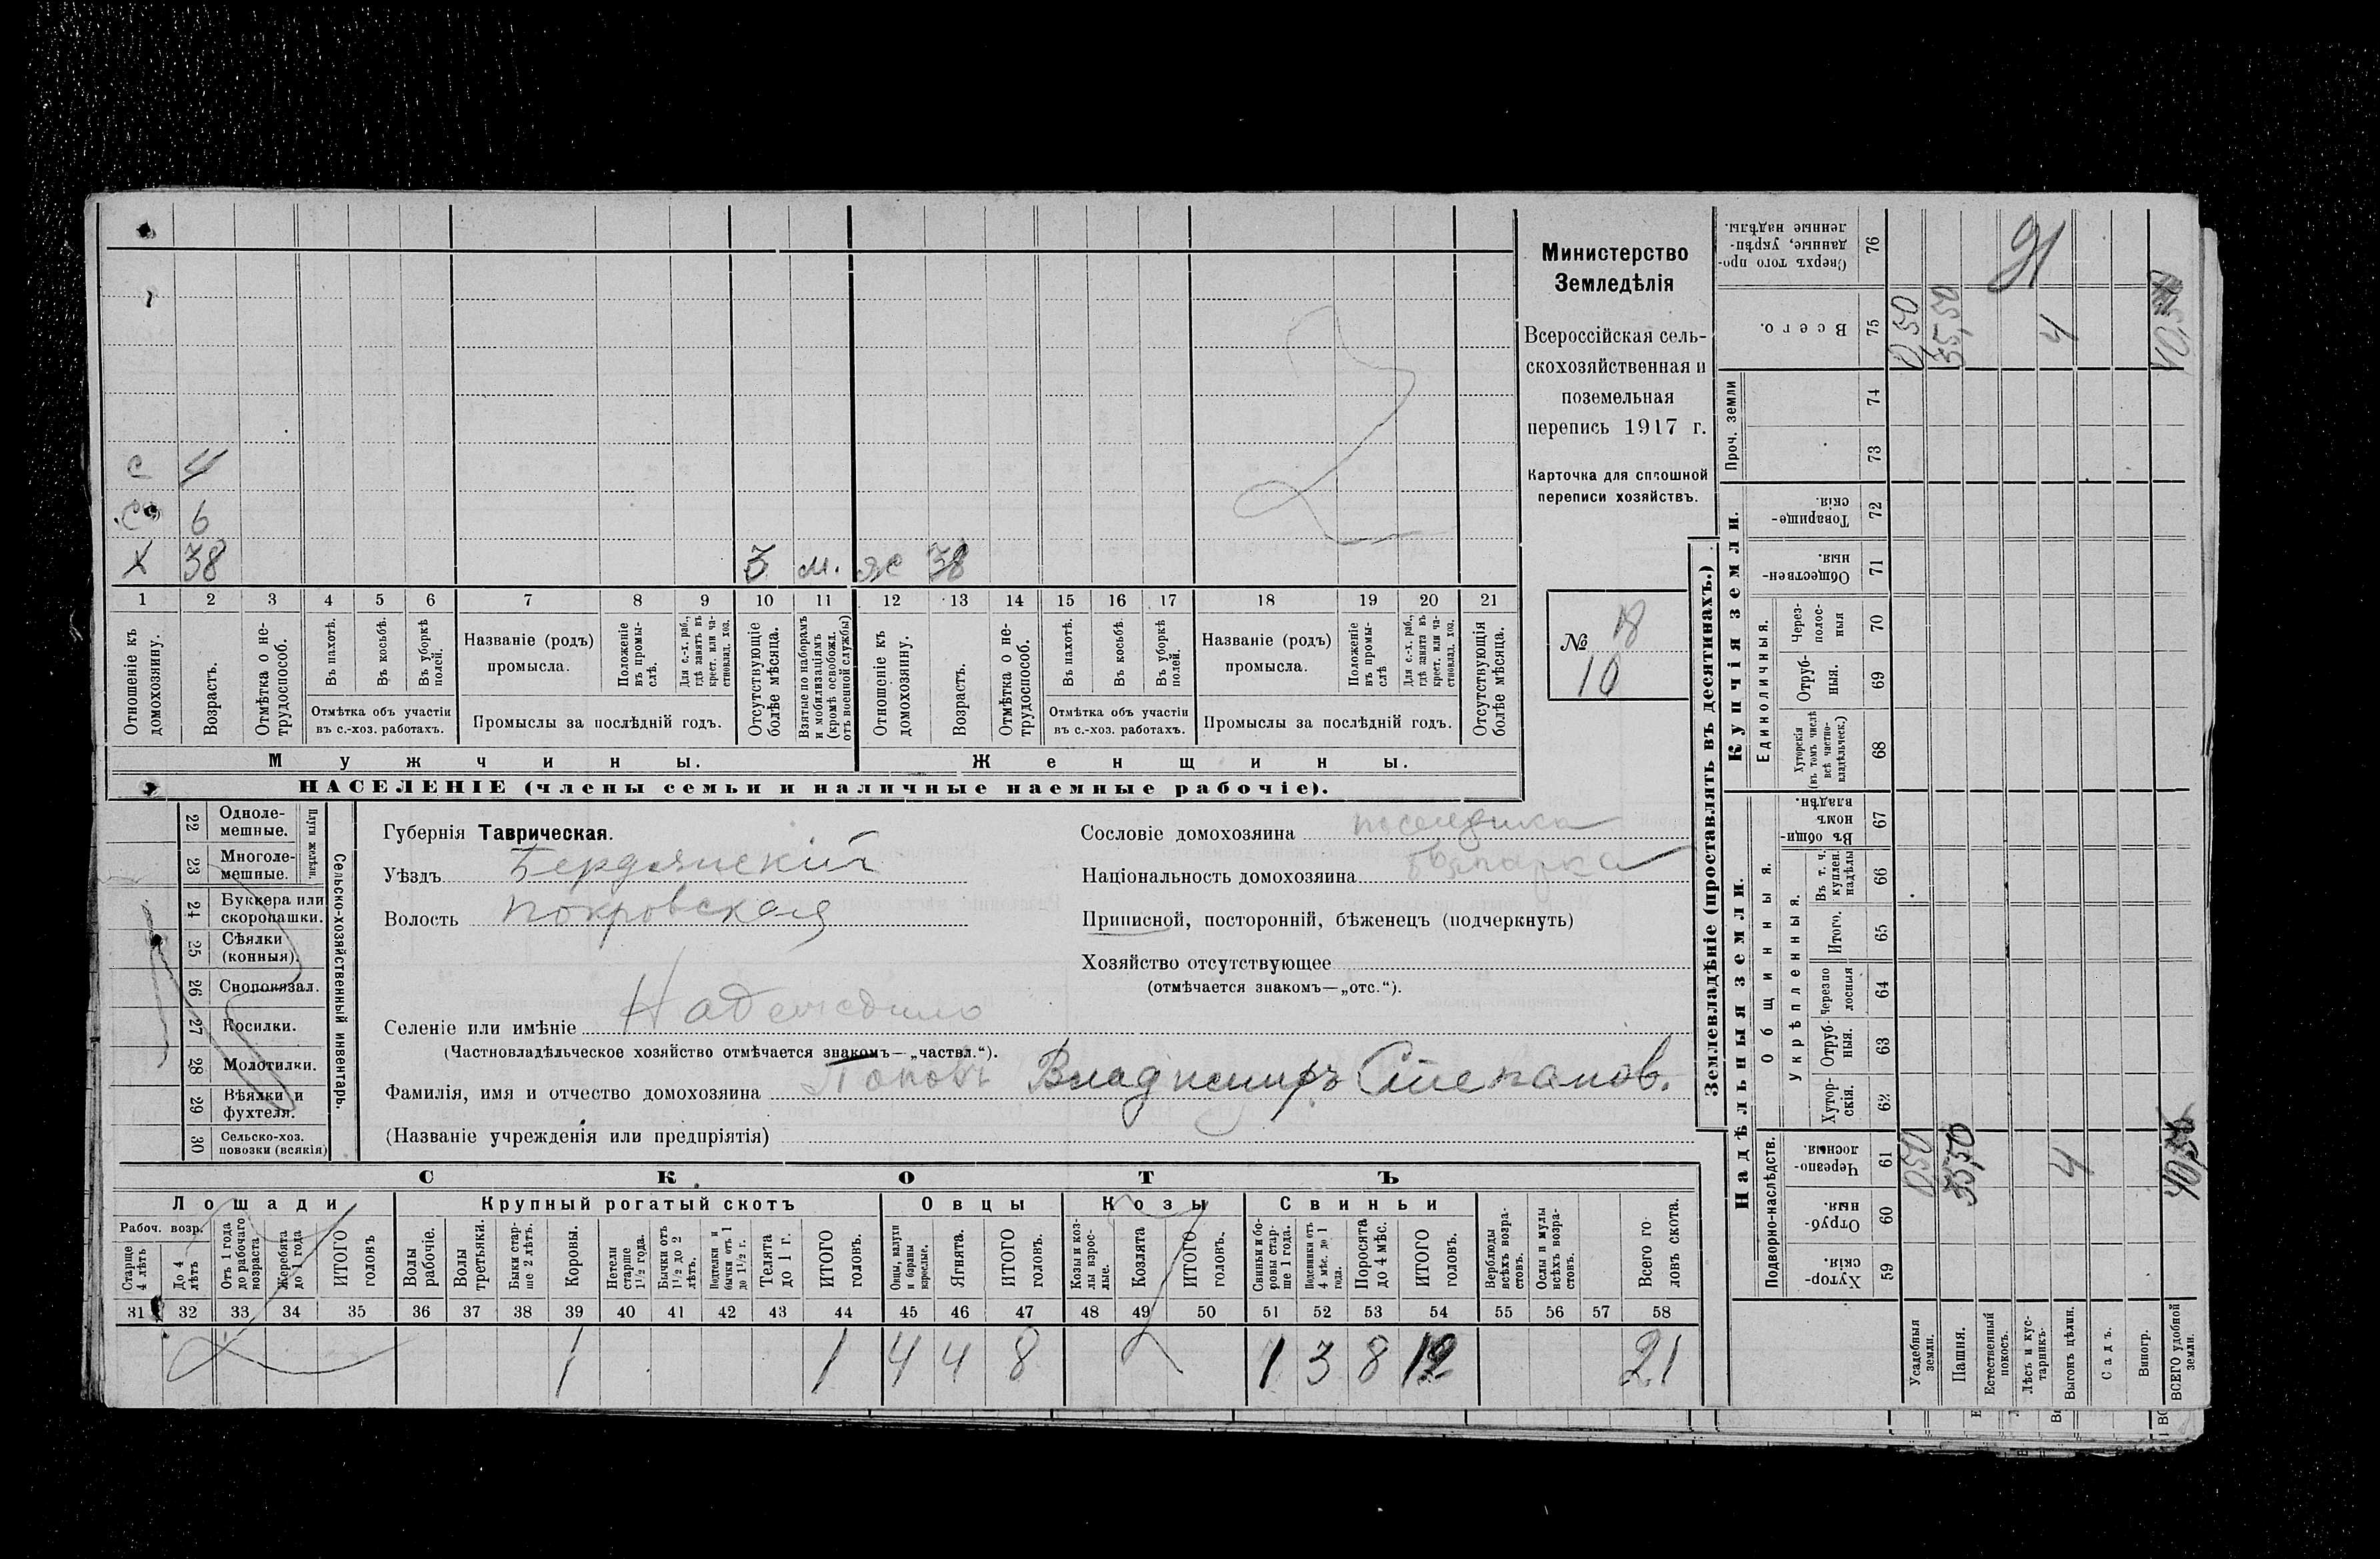 с 4
с 6
х 38 3 м. ж 38
1 2 3 4 5 6 7 8 9 10 11 12 13 14 15 16 17 18 19 20 21
Отношеніе къ домохозяину.
Возрастъ.
Отмѣтка о не-трудоспособ.
Въ пахотѣ.
Въ косьбѣ.
Въ уборкѣ полей.
Отмѣтка объ участіи
въ с.-хоз. работахъ.
Названіе (родъ)
промысла.
Положеніе въ промы-слѣ.
Для с.-х. раб., гдѣ занятъ въ крест. или ча-стновлад. хоз.
Промыслы за послѣдній годъ.
Отсутствующіе болѣе мѣсяца.
Взятые по наборамъ и мобилизаціямъ (кромѣ освобожд. отъ военной службы)
Отношеніе къ домохозяину.
Возрастъ.
Отмѣтка о не-трудоспособ.
Въ пахотѣ.
Въ косьбѣ.
Въ уборкѣ полей.
Отмѣтка объ участіи
въ с.-хоз. работахъ.
Названіе (родъ)
промысла.
Положеніе въ промы-слѣ
Для с.-х. раб., гдѣ занята въ крест. или ча-стновлад. хоз.
Промыслы за послѣдній годъ.
Отсутствующія болѣе мѣсяца.
Мужчины.
Женщины.
НАСЕЛЕНІЕ (члены семьи и наличные наемные рабочіе).
Министерство
Земледѣлія
Всероссійская сель-
скохозяйственная и
поземельная
перепись 1917 г.
Карточка для сплошной
переписи хозяйствъ.
№ 18
10
22 Одноле-мешные.
23 Многоле-мешные.
Плуги желѣзн.
24 Буккера или скоропашки.
25 Сѣялки (конныя).
26 Сноповязал.
27 Косилки.
28 Молотилки.
29 Вѣялки и фухтеля.
30 Сельско-хоз. повозки (всякія)
Сельско-хозяйственный инвентарь.
Губернія Таврическая.
Уѣздъ Бердянскій
Волость Покровская
Селеніе или имѣніе Надеждино
(Частновладѣльческое хозяйство отмѣчается знакомъ—„частвл.“).
Фамилія, имя и отчество домохозяина Поповъ Владимиръ Степанов.
(Названіе учрежденія или предпріятія)
Сословіе домохозяина поселянина
Національность домохозяина
Приписной, посторонній, бѣженецъ (подчеркнуть)
Хозяйство отсутствующее
(отмѣчается знакомъ—„отс.“).
СКОТЪ
Лошади
Крупный рогатый скотъ
Овцы
Козы
Свиньи
Рабоч. возр.
Старше 4 лѣтъ
До 4 лѣтъ
Отъ 1 года до рабочаго возраста
Жеребята до 1 года
ИТОГО головъ
Волы рабочіе.
Волы третьяки.
Быки стар-ше 2 лѣтъ.
Коровы.
Нетели старше 1½ года.
Бычки отъ 1½ до 2 лѣтъ.
Подтелки и бычки отъ 1 до 1½ г.
Телята до 1 г.
ИТОГО головъ.
Овцы, валухи и бараны взрослые.
Ягнята.
ИТОГО головъ.
Козы и коз-лы взрос-лые.
Козлята
ИТОГО головъ.
Свиньи и бо-ровы стар-ше 1 года.
Подсвинки отъ 4 мѣс. до 1 года.
Поросята до 4 мѣс.
ИТОГО головъ.
Верблюды всѣхъ возра-стовъ.
Ослы и мулы всѣхъ возра-стовъ.
Всего го-ловъ скота.
31 32 33 34 35 36 37 38 39 40 41 42 43 44 45 46 47 48 49 50 51 52 53 54 55 56 57 58
1 1 4 4 8 1 3 8 12 21
Землевладѣніе (проставлять въ десятинахъ.)
Надѣльныя земли.
Купчія земли.
Проч. земли
Подворно-наслѣдств.
Общинныя.
Укрѣпленныя.
Единоличныя.
Сверхъ того про-данные, укрѣп-ленные надѣлы. 76
Всего. 75
74
73
Товарище-скія. 72
Обществен-ныя. 71
Через-полос-ныя 70
Отруб-ныя. 69
Хуторскія (въ томъ числѣ всѣ частно-владѣльческ.) 68
Въ общин-номъ владѣн. 67
Въ т. ч. куплен. надѣлы 66
Итого. 65
Черезпо-лосныя 64
Отруб-ныя. 63
Хутор-скія. 62
Черезпо-лосныя. 61
Отруб-ныя. 60
Хутор-скія. 59
Усадебныя земли. 0,50 0,50
Пашня. 35,50 35,50
Естественный покосъ.
Лѣсъ и кус-тарникъ.
Выгонъ цѣлин. 4 4
Садъ.
Виногр.
ВСЕГО удобной земли.
91